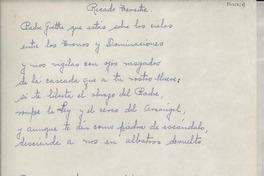 Recado Terrestre
Padre Goethe que estás sobre los cielos
entre los Tronos y Dominaciones
y nos vigilas con ojos rasgados
de la cascada que a tu rostro llueve:
si te liberta el abrazo del Padre,
rompe la Ley y el cerco del Arcángel,
y aunque te den como piedra de escándalo,
desciende a nos en albatros devuelto